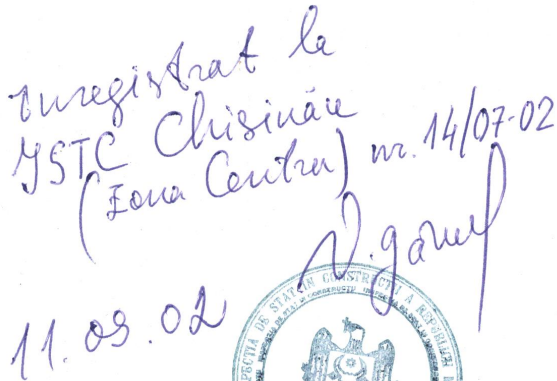 Inregistrat la
ISTC Chisinău
(Zona Centru) nr. 14/07-02
11.09.02
INSPECŢIA DE STAT ÎN CONSTRUCŢII A REPUBLICII